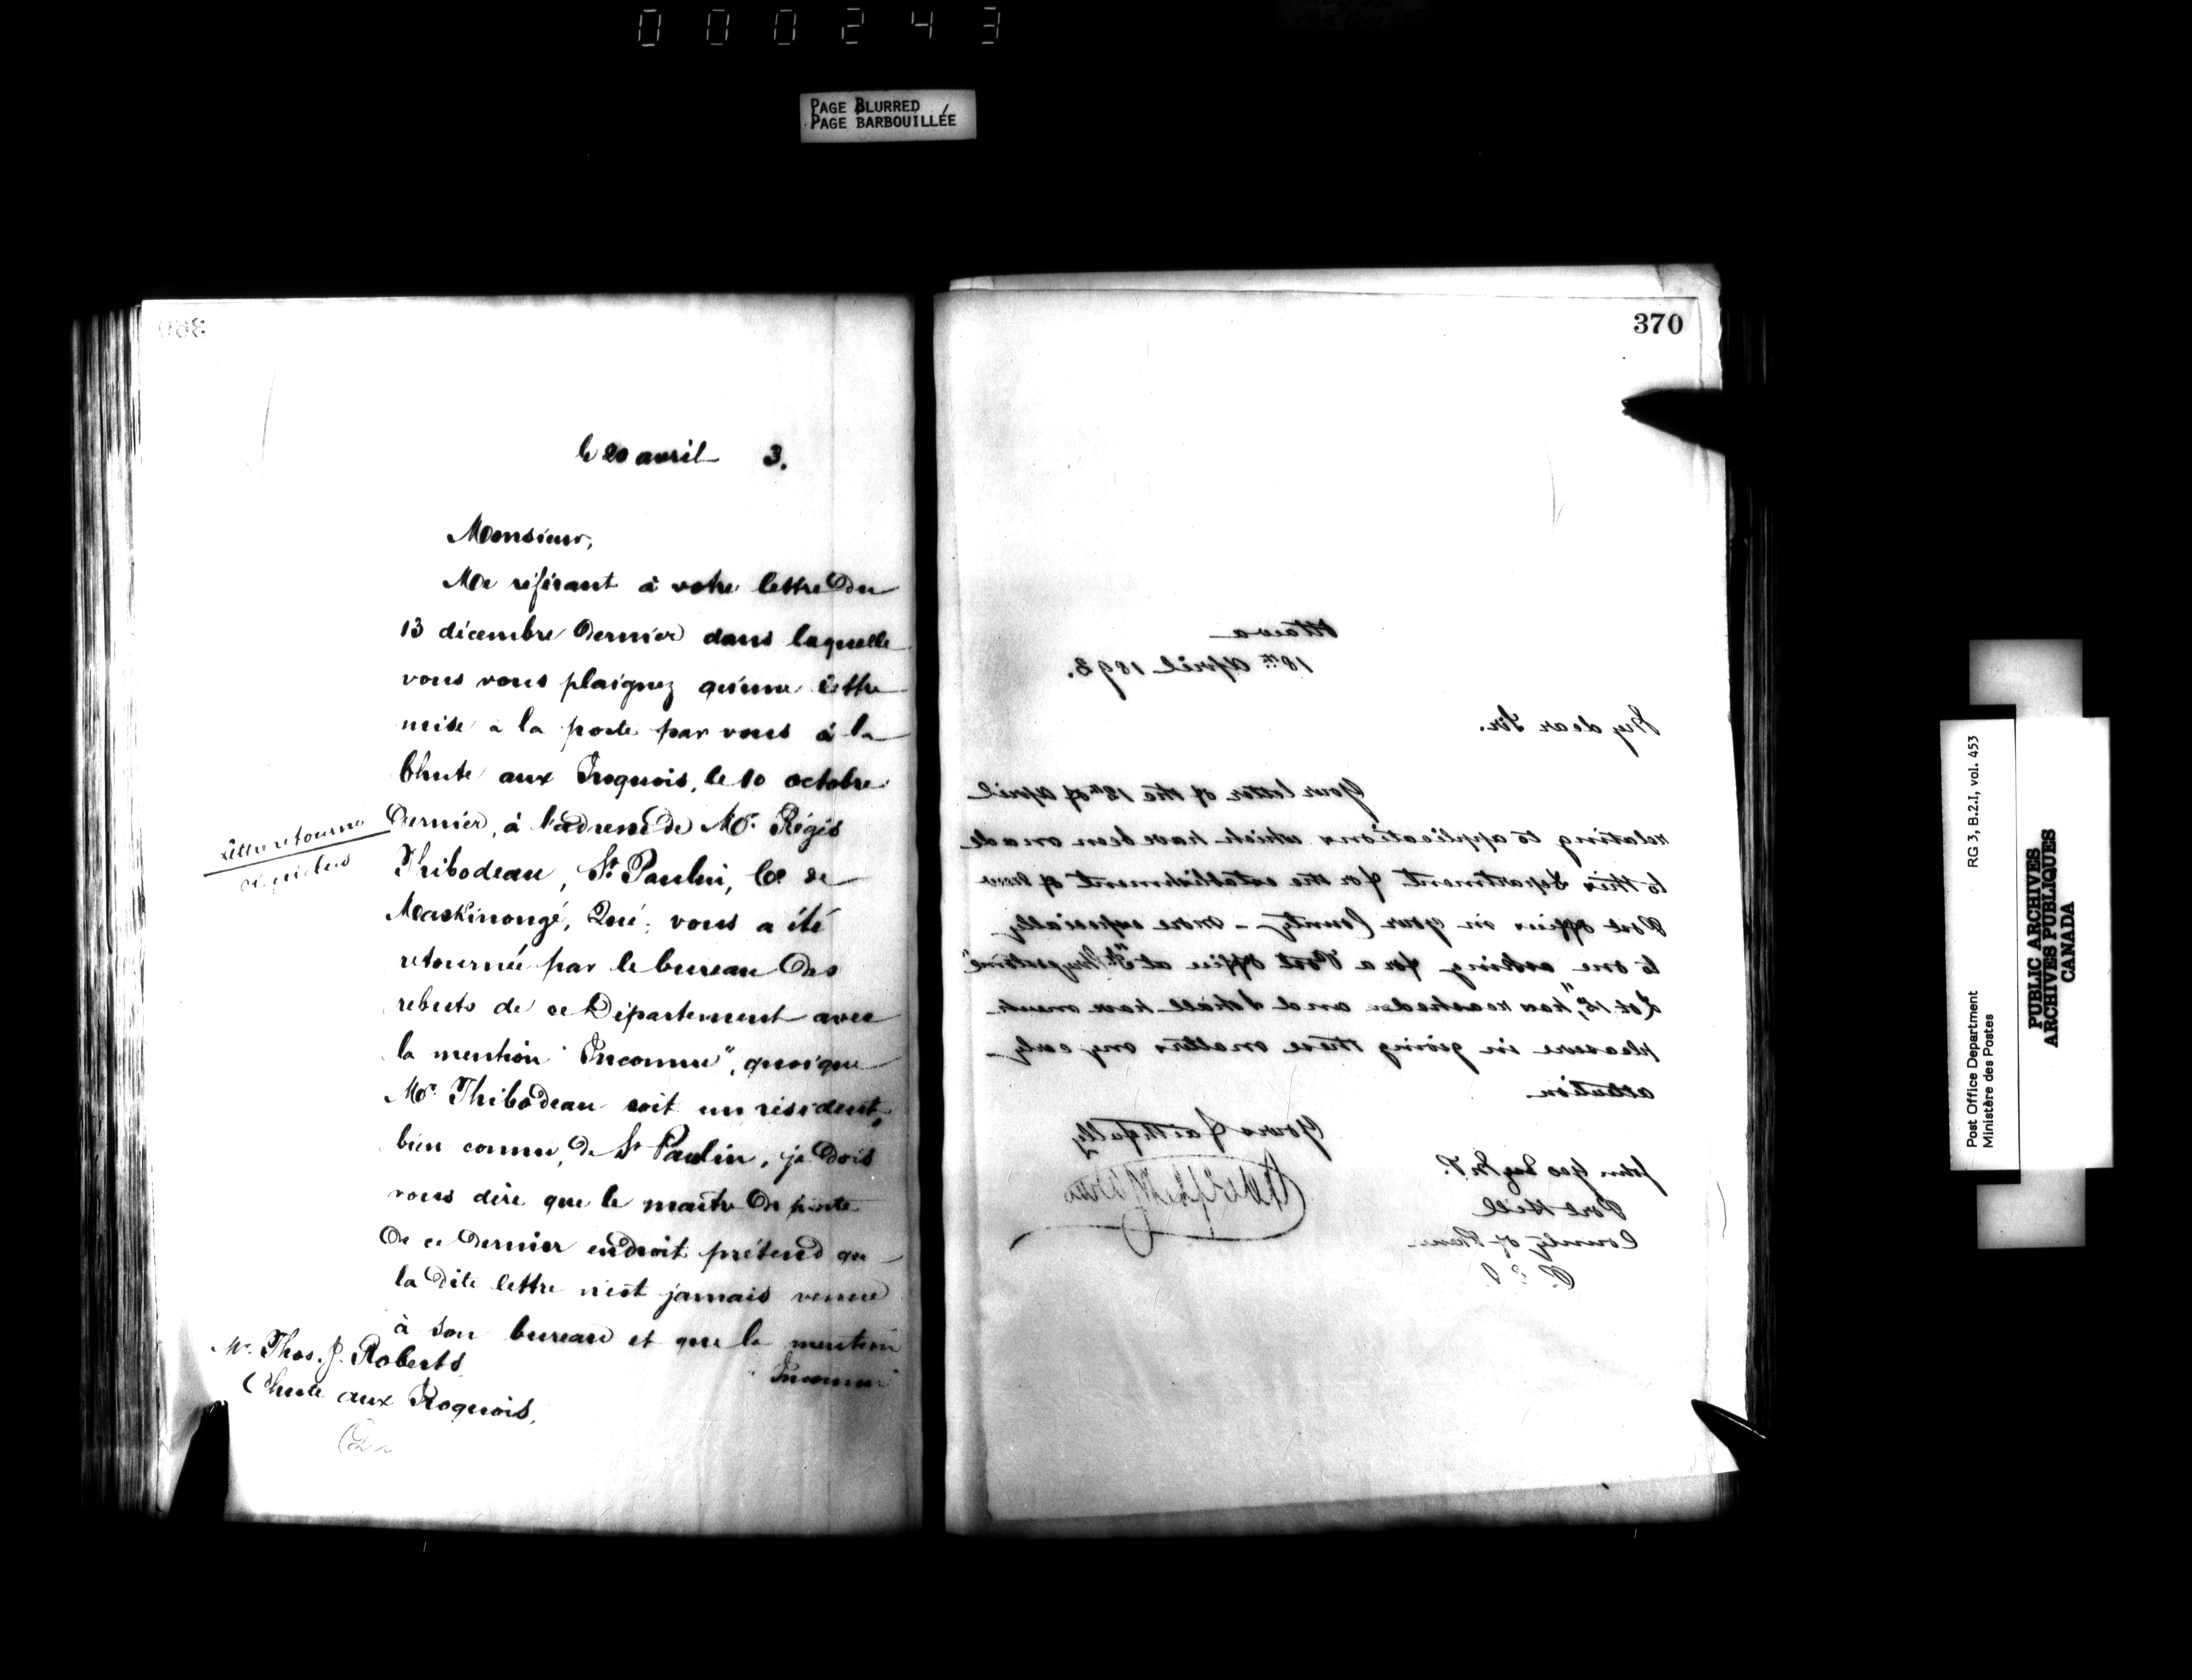 0 0 0 2 4 3
PAGE BLURRED
PAGE BARBOUILLÉE
369
le 20 avril 3.
Monsieur,
Me référant à votre lettre du
13 décembre dernier dans laquelle
vous vous plaignez qu'une lettre
mise à la poste par vous à la
Chute aux Iroquois, le 10 octobre
dernier, à l'adresse de Mr. Régis
Thibodeau, St Paulin, Co. de
Maskinongé, Qué: vous a été
retournée par le bureau des
rebuts de ce Département avec
la mention "Inconnu", quoique
Mr. Thibodeau soit un résident,
bien connu, de St Paulin, je dois
vous dire que le maître de poste
de ce dernier endroit prétend que
la dite lettre n'est jamais venue
à son bureau et que la mention
"Inconnu"
Lettre retournée
Mr. Thos. J. Roberts
Chute aux Iroquois,
Qué
370
Ottawa
18th April 1893.
My dear Sir.
Your letter of the 13th of April
relating to applications which have been made
to this Department for the establishment of new
Post offices in your County - more especially
to one asking for a Post office at
Lot 15", has reached me and I shall have much
pleasure in giving these matters my early
attention.
Yours faithfully
John Yeo Esq M.P.
Port Hill
County of Prince
P. E. I.
Post Office Department RG 3, B.2.I, vol. 453
Ministère des Postes
PUBLIC ARCHIVES
ARCHIVES PUBLIQUES
CANADA